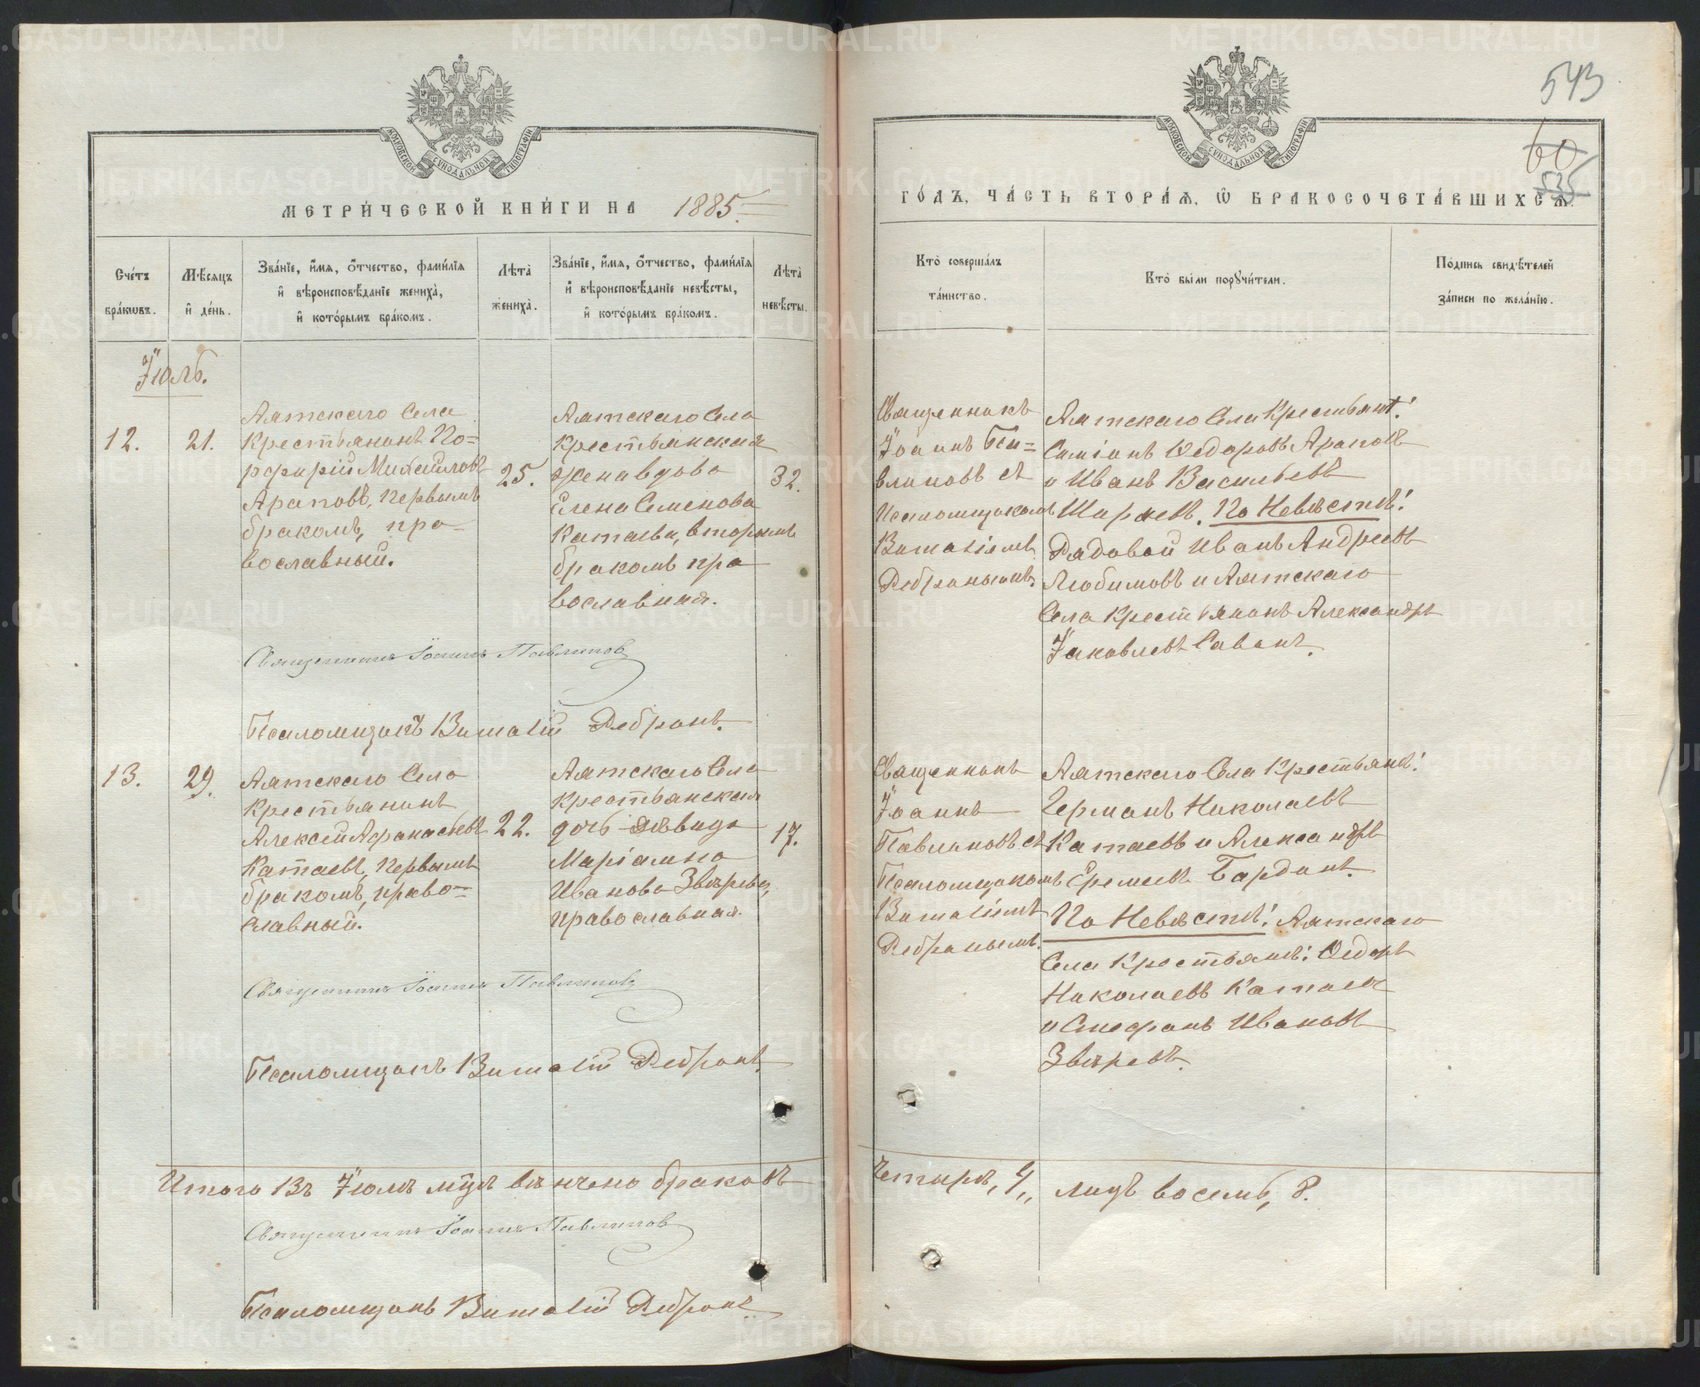 543
60
535
МОСКОВСКОЙ СУНОДАЛЬНОЙ ТИПОГРАФІИ
МОСКОВСКОЙ СУНОДАЛЬНОЙ ТИПОГРАФІИ
МЕТРИ́ЧЕСКОЙ КНИ́ГИ НА 1885.
ГО́ДЪ, ЧА́СТЬ ВТОРА́Ѧ, Ѡ҆ БРАКОСОЧЕТА́ВШИХСѦ.
Сче́тъ
бра́кѡвъ.
Мѣ́сѧцъ
и҆ де́нь.
Зва́нїе, и҆́мѧ, о҆́тчество, фами́лїѧ
и҆ вѣроисповѣ́данїе жениха̀,
и҆ кото́рымъ бра́комъ.
Лѣ́та̀
жениха̀.
Зва́нїе, и҆́мѧ, о҆́тчество, фами́лїѧ
и҆ вѣроисповѣ́данїе невѣ́сты,
и҆ кото́рымъ бра́комъ.
Лѣ́та̀
невѣ́сты.
Кто̀ соверша́лъ
та́инство.
Кто̀ бы́ли порꙋчи́тели.
По́дпись свидѣ́телей
за́писи по жела́нїю.
Іюль.
12.
21.
Аятскаго Села
Крестьянинъ По=
рфирій Михайловъ
Араповъ, первымъ
бракомъ, пра-
вославный.
25.
Аятскаго Села
Крестьянская
жена вдова
Елена Семенова
Катаева, вторымъ
бракомъ пра
вославная.
32.
Священникъ
Іоаннъ Па=
влиновъ съ
Псаломщикомъ
Виталіемъ
Ребринымъ.
Аятскаго Села Крестьяне:
Симіонъ Ѳедоровъ Араповъ
и Иванъ Васильевъ
Ширяевъ. По Невѣстѣ:
Рядовой Иванъ Андреевъ
Любимовъ и Аятскаго
Села Крестьянинъ Александръ
Іаковлевъ Савинъ.
Священникъ Іоаннъ Павлиновъ
Псаломщикъ Виталій Ребринъ.
13.
29.
Аятскаго Села
Крестьянинъ
Алексей Афанасьевъ
Катаевъ, первымъ
бракомъ, право=
славный.
22.
Аятскаго Села
Крестьянская
дочь дѣвица
Маріамна
Иванова Звѣрева,
православная.
17.
Священникъ
Іоаннъ
Павлиновъ съ
Псаломщикомъ
Виталіемъ
Ребринымъ.
Аятскаго Села Крестьяне:
Германъ Николаевъ
Катаевъ и Александръ
Еремеевъ Бардинъ.
По Невѣстѣ: Аятскаго
Села Крестьяне: Ѳедоръ
Николаевъ Катаевъ
и Стефанъ Ивановъ
Звѣревъ.
Священникъ Іоаннъ Павлиновъ
Псаломщикъ Виталій Ребринъ.
Итого въ Іюлѣ мцѣ вѣнчено браковъ четыре, 4,, лицъ восемь, 8.
Священникъ Іоаннъ Павлиновъ
Псаломщикъ Виталій Ребринъ.
METRIKI.GASO-URAL.RU